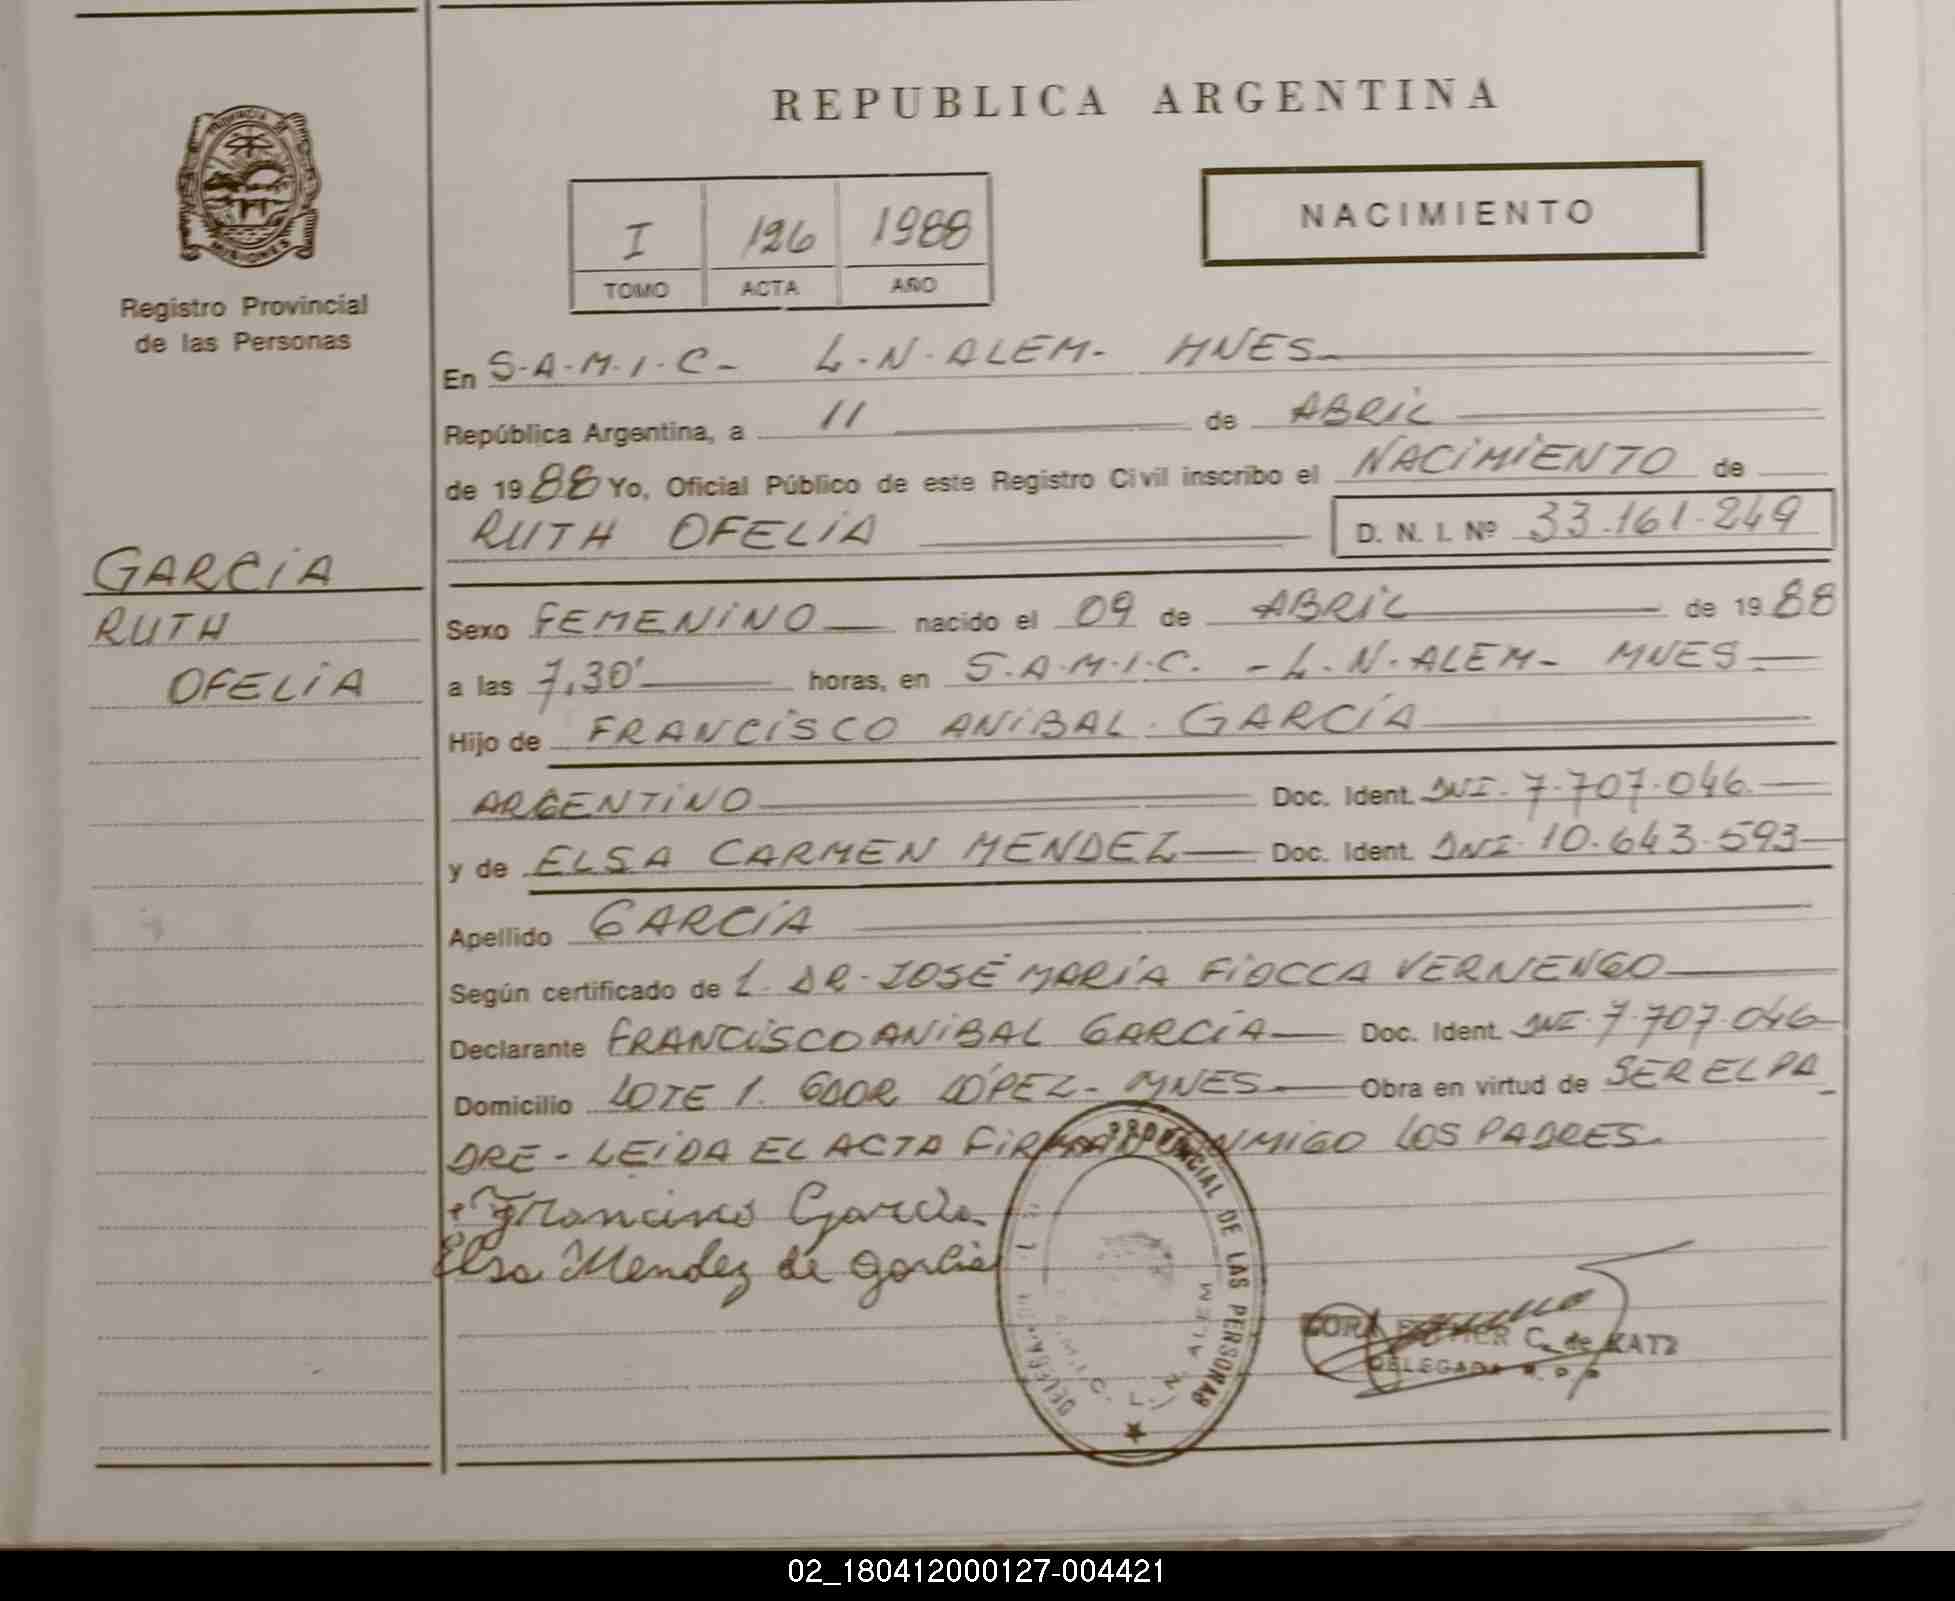 REPUBLICA ARGENTINA
PROVINCIA DE MISIONES
Registro Provincial
de las Personas
I 126 1988
TOMO ACTA AÑO
NACIMIENTO
En S.A.M.I.C- L.N.ALEM- MNES-
República Argentina, a 11 de ABRIL
de 1988 Yo, Oficial Público de este Registro Civil inscribo el NACIMIENTO de
RUTH OFELIA D. N. I. Nº 33.161.249
GARCIA
RUTH
OFELIA
Sexo FEMENINO nacido el 09 de ABRIL de 1988
a las 7,30' horas, en S.A.M.I.C. - L.N.ALEM- MNES-
Hijo de FRANCISCO ANIBAL GARCÍA
ARGENTINO Doc. Ident. DNI. 7.707.046
y de ELSA CARMEN MENDEZ Doc. Ident. DNI. 10.643.593
Apellido GARCÍA
Según certificado de L. DR. JOSÉ MARÍA FIOCCA VERNENGO
Declarante FRANCISCO ANIBAL GARCÍA Doc. Ident. DNI. 7.707.046
Domicilio LOTE 1. GDOR LÓPEZ- MNES- Obra en virtud de SER EL PA
DRE - LEIDA EL ACTA FIRMAN CONMIGO LOS PADRES.
Francisco García
Elsa Mendez de Garcia
PROVINCIAL DE LAS PERSONAS
S.A.M.I.C. L. N. ALEM
C. de KATZ
DELEGADA
02_180412000127-004421